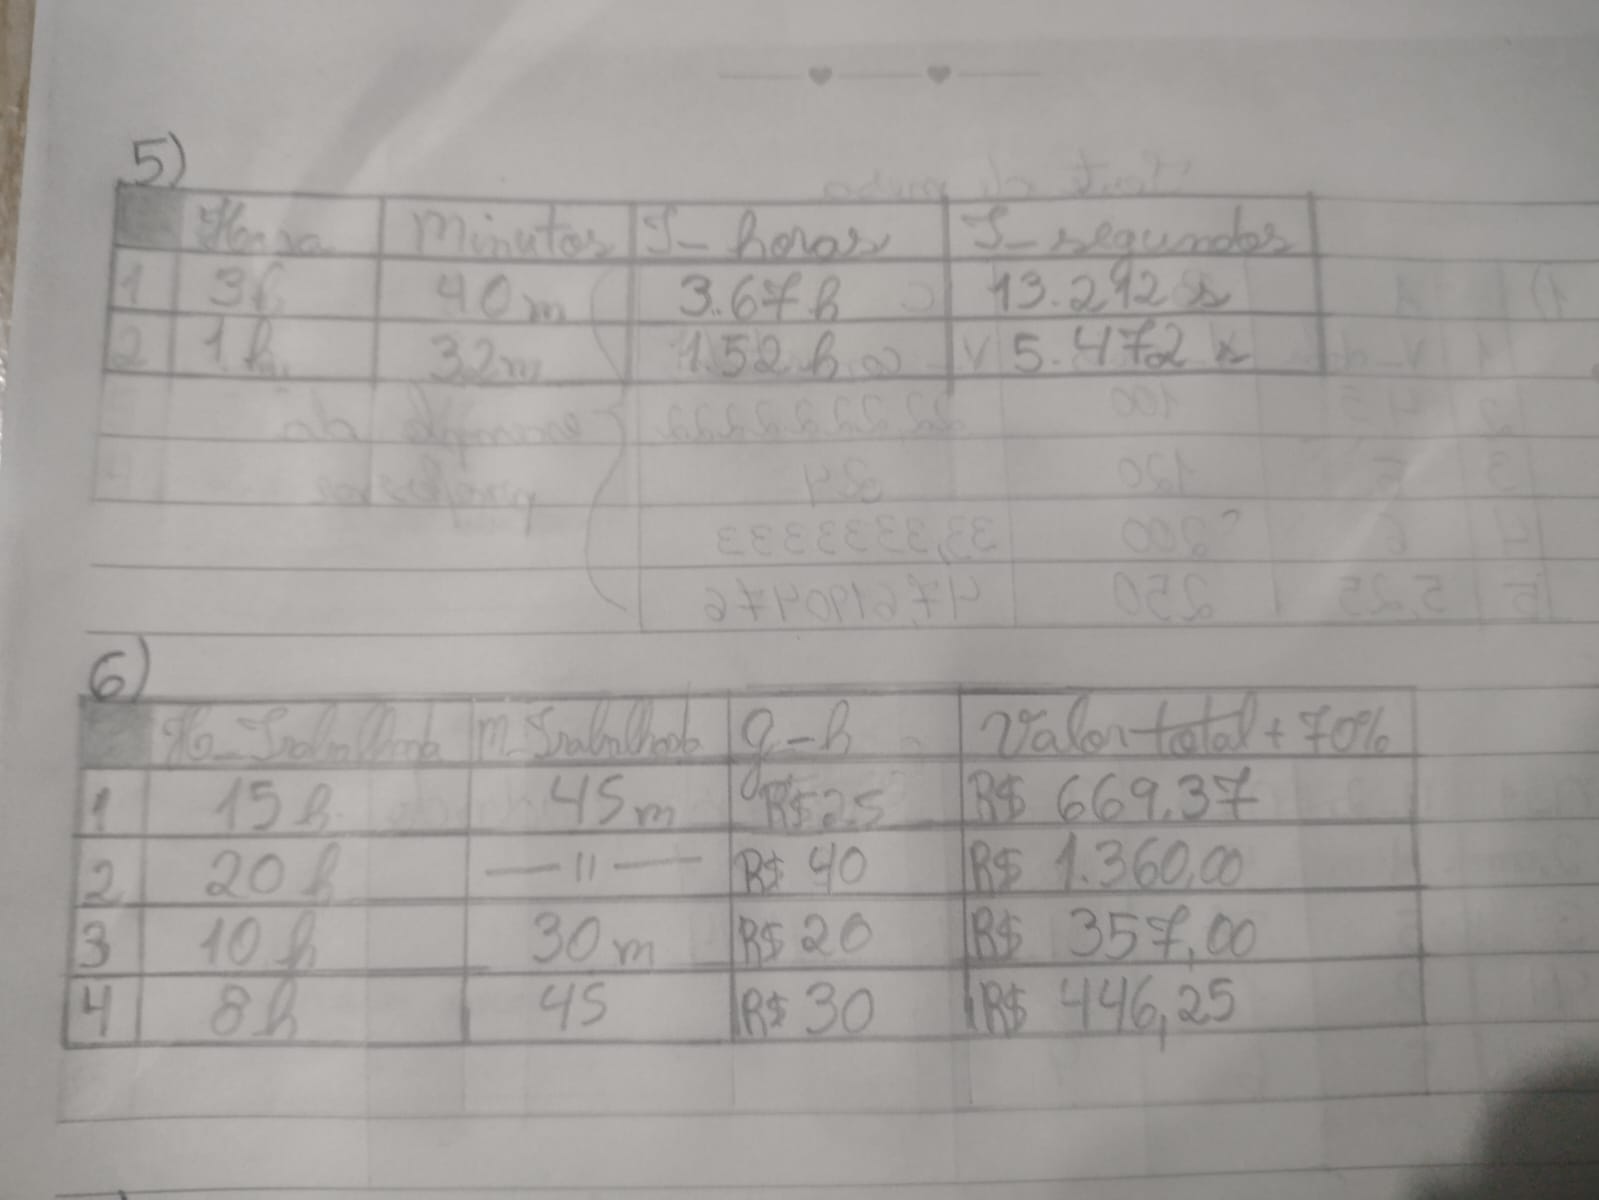 5)
Hora Minutos T_ horas T_ segundos
1 3h 40m 3.67h 13.212 s
2 1h 32m 1.52h 5.472 s
6)
H_Trabalhada m_Trabalhada g-h Valor total + 70%
1 15h 45m R$25 R$ 669.37
2 20h —11— R$ 40 R$ 1.360,00
3 10h 30m R$ 20 R$ 357,00
4 8h 45 R$ 30 R$ 446,25